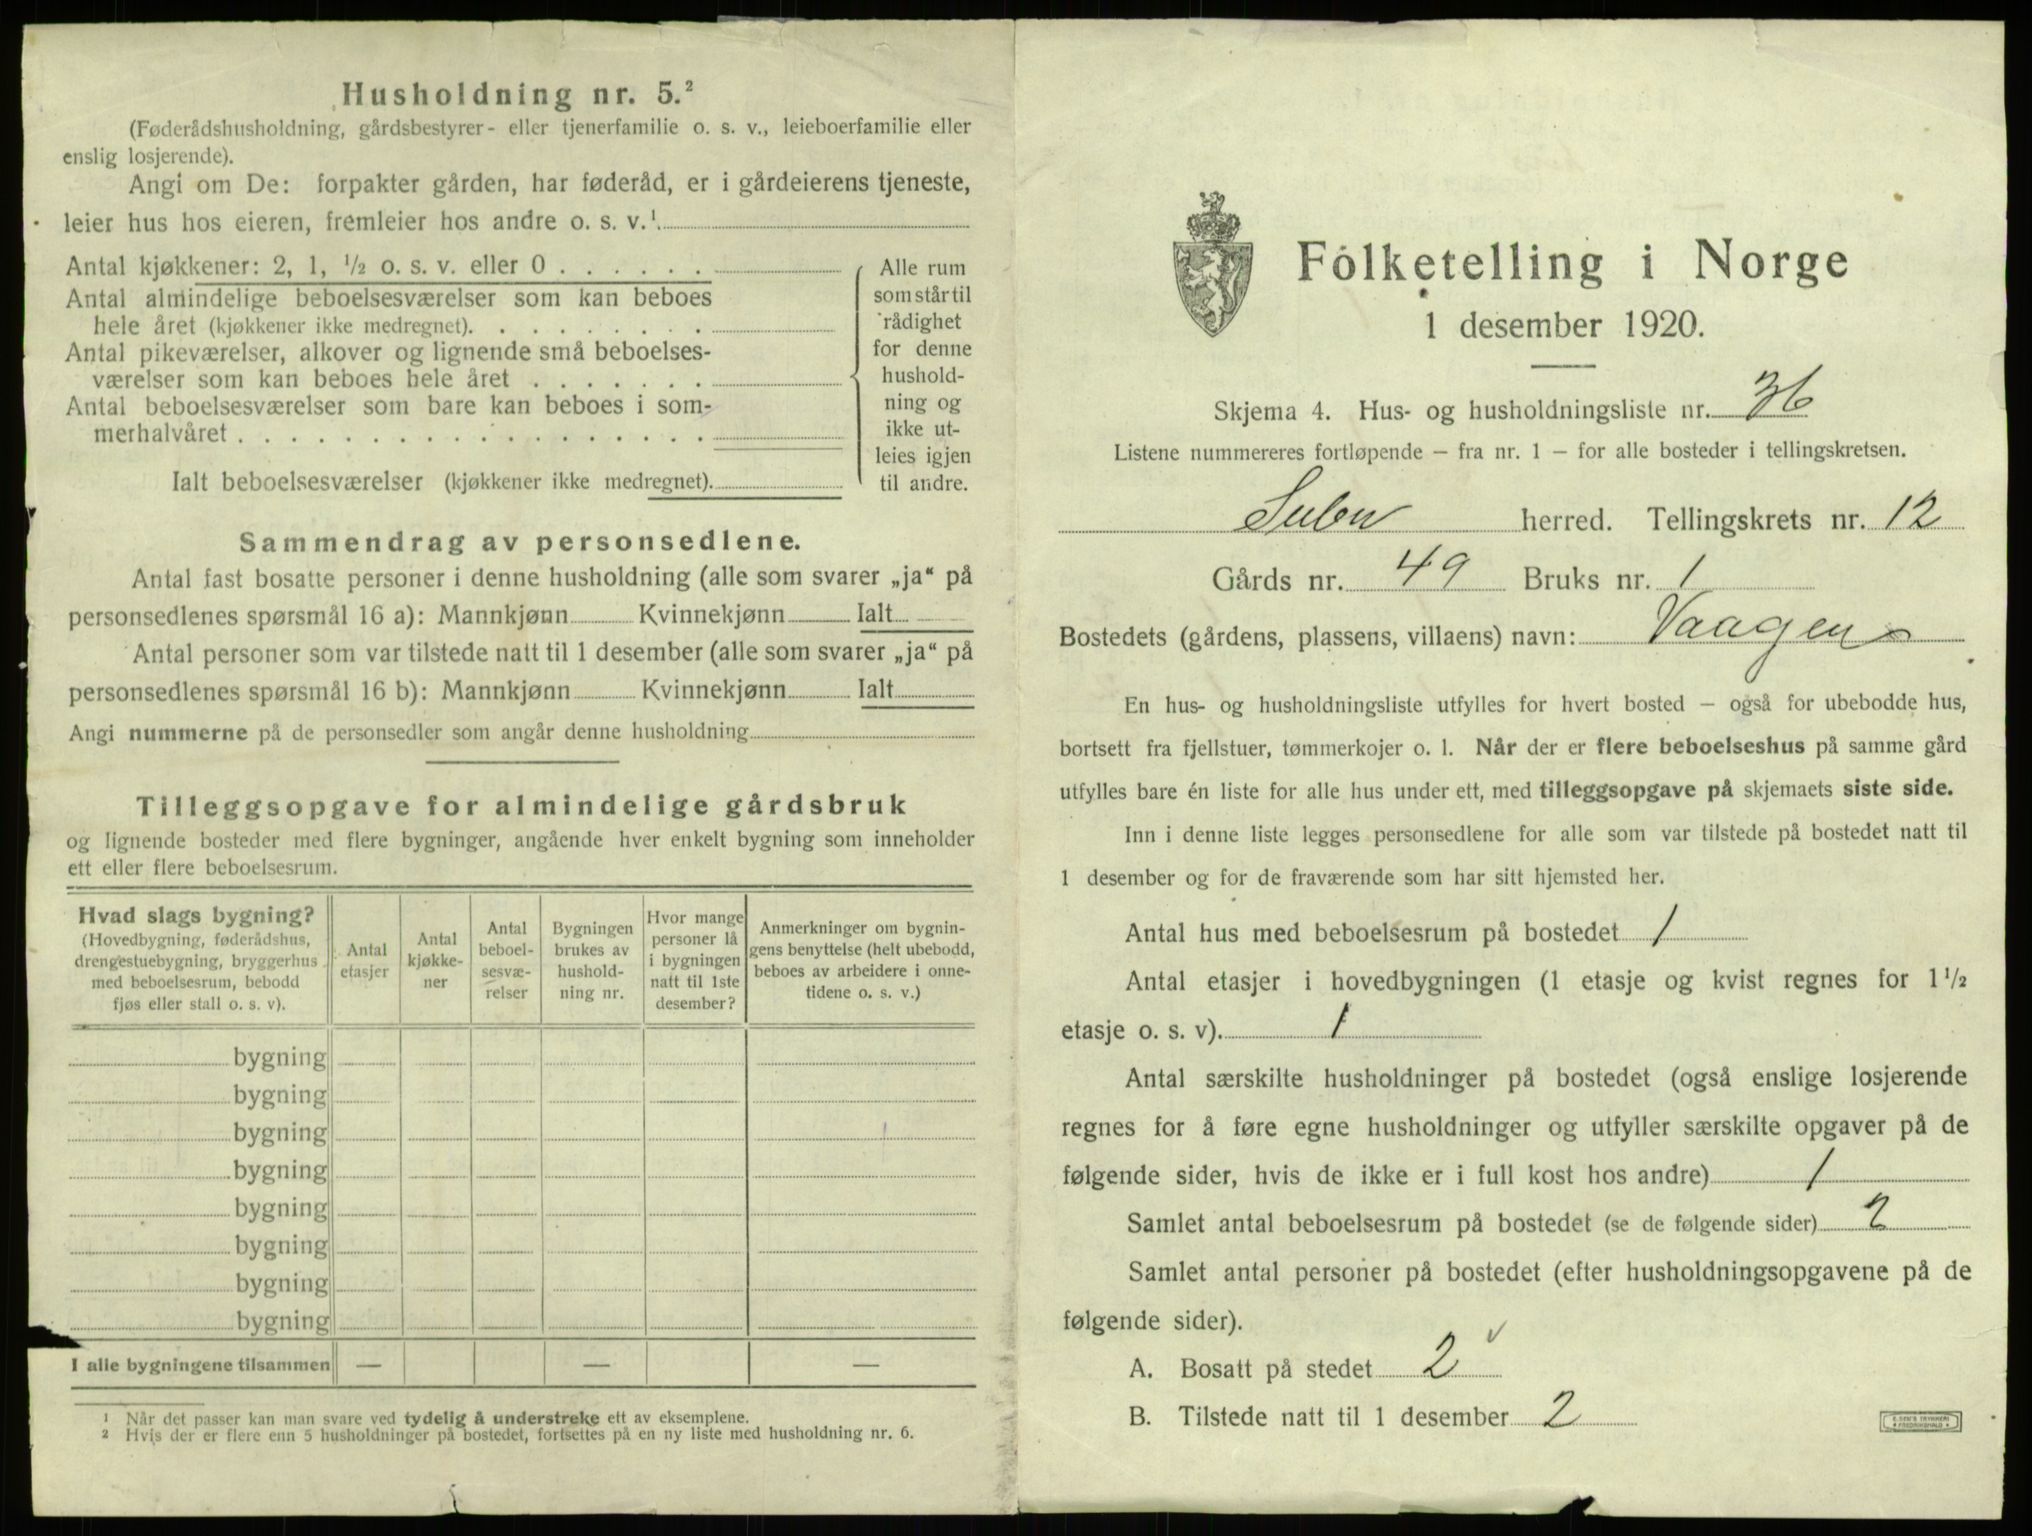 Husholdning nr. 5.²
(Føderådshusholdning, gårdsbestyrer- eller tjenerfamilie o. s. v., leieboerfamilie eller
enslig losjerende).
Angi om De: forpakter gården, har føderåd, er i gårdeierens tjeneste,
leier hus hos eieren, fremleier hos andre o. s. v.¹
Antal kjøkkener: 2, 1, ½ o. s. v. eller 0 . . . . . .
Antal almindelige beboelsesværelser som kan beboes
hele året (kjøkkener ikke medregnet). . . . . . . . .
Antal pikeværelser, alkover og lignende små beboelses-
værelser som kan beboes hele året . . . . . . .
Antal beboelsesværelser som bare kan beboes i som-
merhalvåret . . . . . . . . . . . . . . . . . .
Ialt beboelsesværelser (kjøkkener ikke medregnet).
Alle rum
som står til
rådighet
for denne
hushold-
ning og
ikke ut-
leies igjen
til andre.
Sammendrag av personsedlene.
Antal fast bosatte personer i denne husholdning (alle som svarer „ja“ på
personsedlenes spørsmål 16 a): Mannkjønn Kvinnekjønn Ialt
Antal personer som var tilstede natt til 1 desember (alle som svarer „ja“ på
personsedlenes spørsmål 16 b): Mannkjønn Kvinnekjønn Ialt
Angi nummerne på de personsedler som angår denne husholdning
Tilleggsopgave for almindelige gårdsbruk
og lignende bosteder med flere bygninger, angående hver enkelt bygning som inneholder
ett eller flere beboelsesrum.
Hvad slags bygning?
(Hovedbygning, føderådshus,
drengestuebygning, bryggerhus
med beboelsesrum, bebodd
fjøs eller stall o. s. v).
Antal
etasjer
Antal
kjøkke-
ner
Antal
beboel-
sesvæ-
relser
Bygningen
brukes av
hushold-
ning nr.
Hvor mange
personer lå
i bygningen
natt til 1ste
desember?
Anmerkninger om bygnin-
gens benyttelse (helt ubebodd,
beboes av arbeidere i onne-
tidene o. s. v.)
bygning
bygning
bygning
bygning
bygning
bygning
bygning
bygning
I alle bygningene tilsammen — — —
¹ Når det passer kan man svare ved tydelig å understreke ett av eksemplene.
² Hvis der er flere enn 5 husholdninger på bostedet, fortsettes på en ny liste med husholdning nr. 6.
Folketelling i Norge
1 desember 1920.
Skjema 4. Hus- og husholdningsliste nr. 36
Listene nummereres fortløpende – fra nr. 1 – for alle bosteder i tellingskretsen.
herred. Tellingskrets nr. 12
Gårds nr. 49 Bruks nr. 1
Bostedets (gårdens, plassens, villaens) navn: Vaagen
En hus- og husholdningsliste utfylles for hvert bosted – også for ubebodde hus,
bortsett fra fjellstuer, tømmerkojer o. l. Når der er flere beboelseshus på samme gård
utfylles bare én liste for alle hus under ett, med tilleggsopgave på skjemaets siste side.
Inn i denne liste legges personsedlene for alle som var tilstede på bostedet natt til
1 desember og for de fraværende som har sitt hjemsted her.
Antal hus med beboelsesrum på bostedet 1
Antal etasjer i hovedbygningen (1 etasje og kvist regnes for 1½
etasje o. s. v). 1
Antal særskilte husholdninger på bostedet (også enslige losjerende
regnes for å føre egne husholdninger og utfyller særskilte opgaver på de
følgende sider, hvis de ikke er i full kost hos andre) 1
Samlet antal beboelsesrum på bostedet (se de følgende sider) 2
Samlet antal personer på bostedet (efter husholdningsopgavene på de
følgende sider).
A. Bosatt på stedet 2
B. Tilstede natt til 1 desember 2